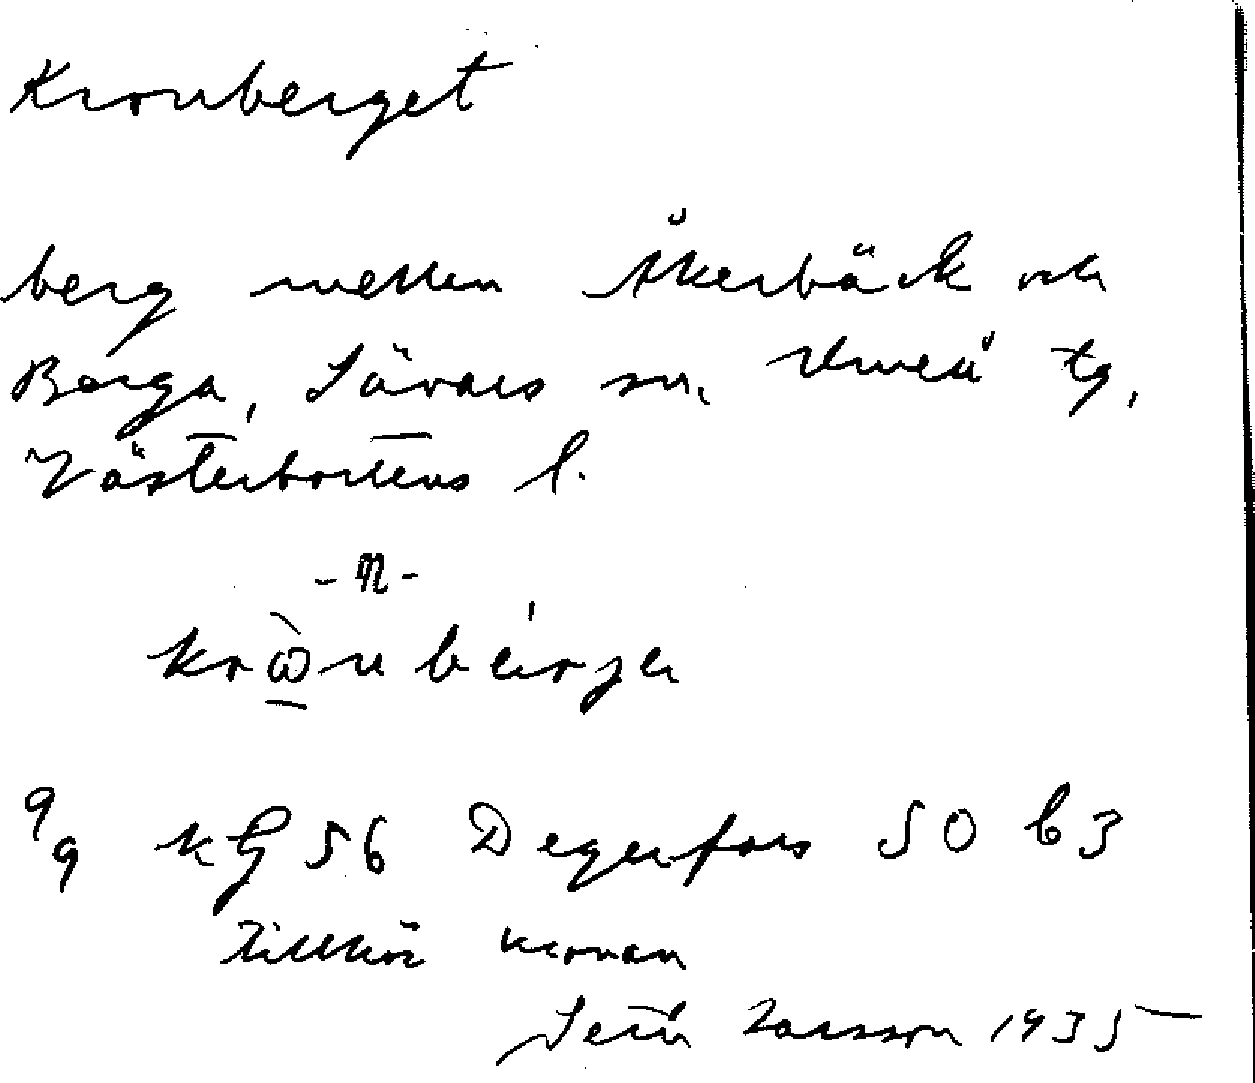 Kronberget
berg mellan Åkerbäck och
Berga, Sävars sn. Umeå tg,
Västerbottens l.
-n-
9/9 KG 56 Degerfors 50 b3
tillhör kronan
Larsson 1935